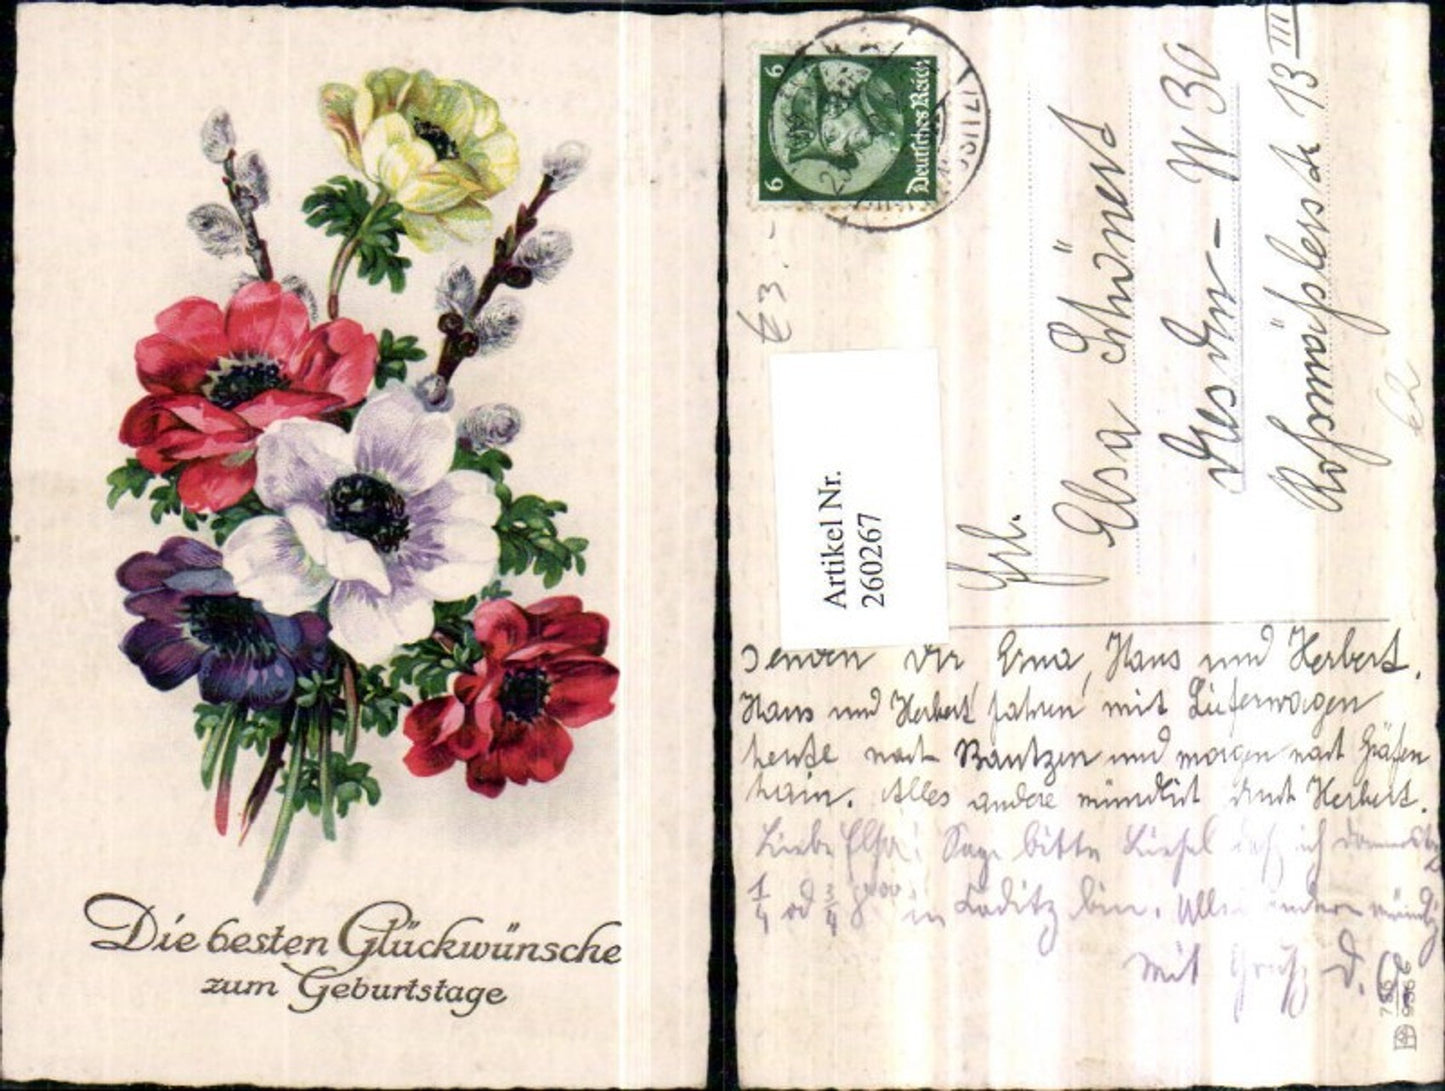 Die besten Glückwünsche
zum Geburtstage
6 6
Deutsches Reich
Artikel Nr.
260267
Frl.
Elsa
Dresden - W 30
13 III
senden Dir Erna, Hans und Herbert.
Hans und Herbert fahren mit Lieferwagen
heute nach Bautzen und morgen nach Gräfen
hain. Alles andere mündlich durch Herbert.
Liebe Elsa! Sage bitte Liesel daß ich
1/4 od 3/4 in bin. Alles andere
mit Gruß D.